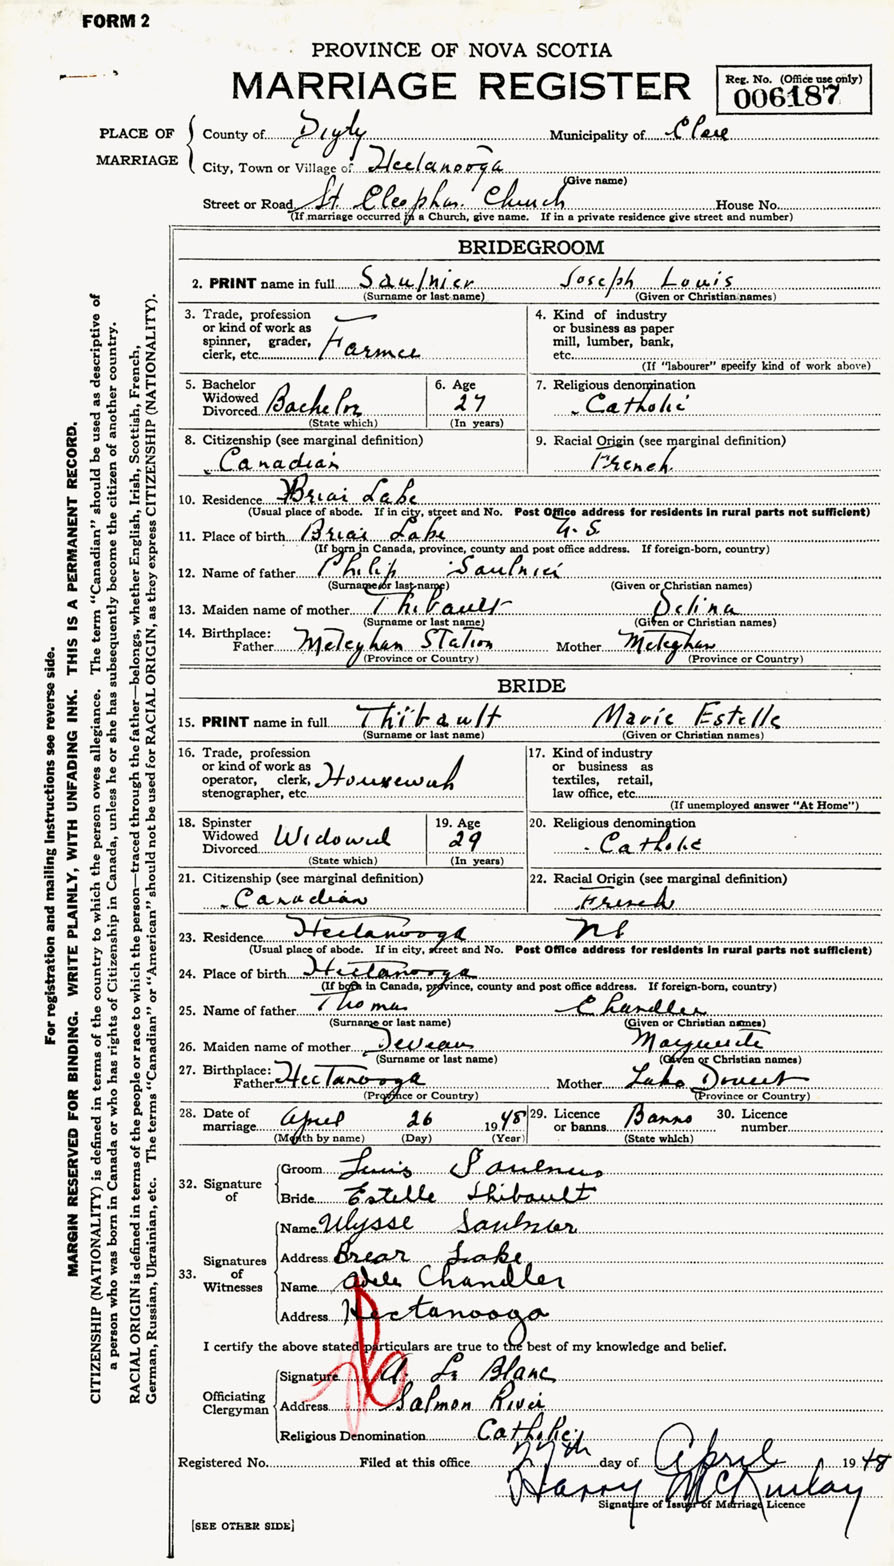 FORM 2
PROVINCE OF NOVA SCOTIA
MARRIAGE REGISTER
Reg. No. (Office use only)
006187
PLACE OF MARRIAGE
County of Digby Municipality of Clare
City, Town or Village of Hectanooga
(Give name)
Street or Road St. Cleophas Church House No.
(If marriage occurred in a Church, give name. If in a private residence give street and number)
BRIDEGROOM
2. PRINT name in full Saulnier Joseph Louis
(Surname or last name) (Given or Christian names)
3. Trade, profession or kind of work as spinner, grader, clerk, etc. Farmer
4. Kind of industry or business as paper mill, lumber, bank, etc.
(If "labourer" specify kind of work above)
5. Bachelor Widowed Divorced Bachelor
(State which)
6. Age 27
(In years)
7. Religious denomination
Catholic
8. Citizenship (see marginal definition)
Canadian
9. Racial Origin (see marginal definition)
French
10. Residence Briar Lake
(Usual place of abode. If in city, street and No. Post Office address for residents in rural parts not sufficient)
11. Place of birth Briar Lake N.S.
(If born in Canada, province, county and post office address. If foreign-born, country)
12. Name of father Philip Saulnier
(Surname or last name) (Given or Christian names)
13. Maiden name of mother Thibault Delina
(Surname or last name) (Given or Christian names)
14. Birthplace:
Father Meteghan Station Mother Meteghan
(Province or Country) (Province or Country)
BRIDE
15. PRINT name in full Thibault Marie Estelle
(Surname or last name) (Given or Christian names)
16. Trade, profession or kind of work as operator, clerk, stenographer, etc.
17. Kind of industry or business as textiles, retail, law office, etc.
(If unemployed answer "At Home")
18. Spinster Widowed Divorced Widowed
(State which)
19. Age 29
(In years)
20. Religious denomination
Catholic
21. Citizenship (see marginal definition)
Canadian
22. Racial Origin (see marginal definition)
French
23. Residence Hectanooga NS
(Usual place of abode. If in city, street and No. Post Office address for residents in rural parts not sufficient)
24. Place of birth Hectanooga
(If born in Canada, province, county and post office address. If foreign-born, country)
25. Name of father Thomas Chandler
(Surname or last name) (Given or Christian names)
26. Maiden name of mother Deveau Marguerite
(Surname or last name) (Given or Christian names)
27. Birthplace:
Father Hectanooga Mother Lake Doucet
(Province or Country) (Province or Country)
28. Date of marriage April 26 1948
(Month by name) (Day) (Year)
29. Licence or banns Banns
(State which)
30. Licence number
32. Signature of
Groom Louis Saulnier
Bride Estelle Thibault
33. Signatures of Witnesses
Name Ulysse Saulnier
Address Brear Lake
Name Adele Chandler
Address Hectanooga
I certify the above stated particulars are true to the best of my knowledge and belief.
Officiating Clergyman
Signature A. Le Blanc
Address Salmon River
Religious Denomination Catholic
Registered No. Filed at this office 27th day of April 1948
Harry McKinlay
Signature of Issuer of Marriage Licence
[SEE OTHER SIDE]
For registration and mailing instructions see reverse side.
MARGIN RESERVED FOR BINDING. WRITE PLAINLY, WITH UNFADING INK. THIS IS A PERMANENT RECORD.
CITIZENSHIP (NATIONALITY) is defined in terms of the country to which the person owes allegiance. The term "Canadian" should be used as descriptive of
a person who was born in Canada or who has rights of Citizenship in Canada, unless he or she has subsequently become the citizen of another country.
RACIAL ORIGIN is defined in terms of the people or race to which the person—traced through the father—belongs, whether English, Irish, Scottish, French,
German, Russian, Ukrainian, etc. The terms "Canadian" or "American" should not be used for RACIAL ORIGIN, as they express CITIZENSHIP (NATIONALITY).